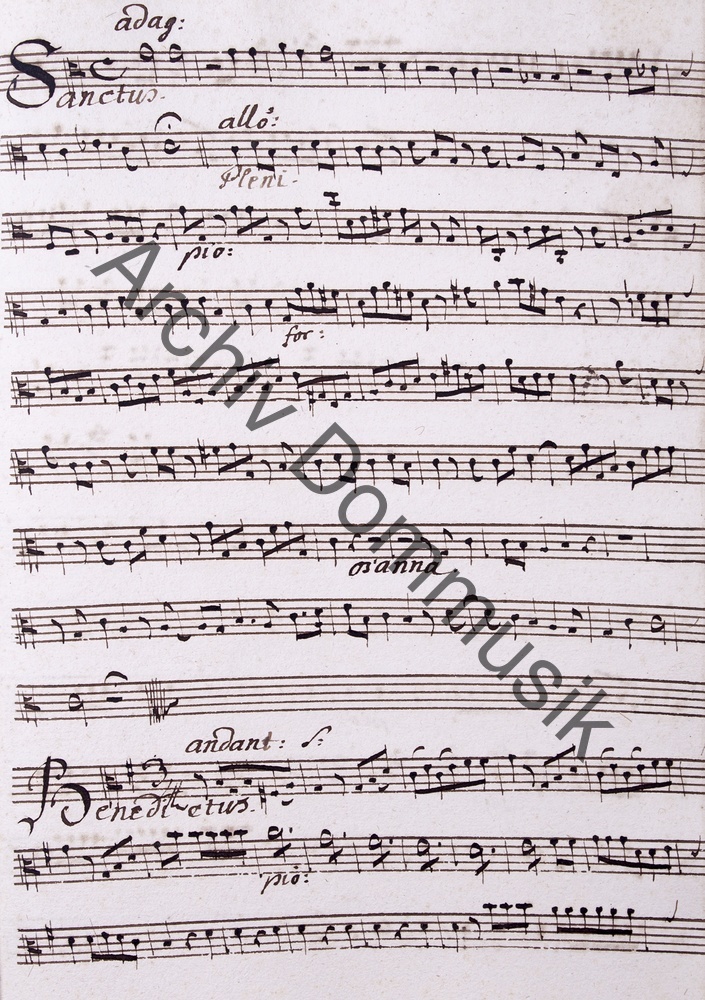 adag:
Sanctus.
allo:
Pleni.
pio:
for:
osanna
andant: f:
Benedictus.
pio:
Archiv Dommusik